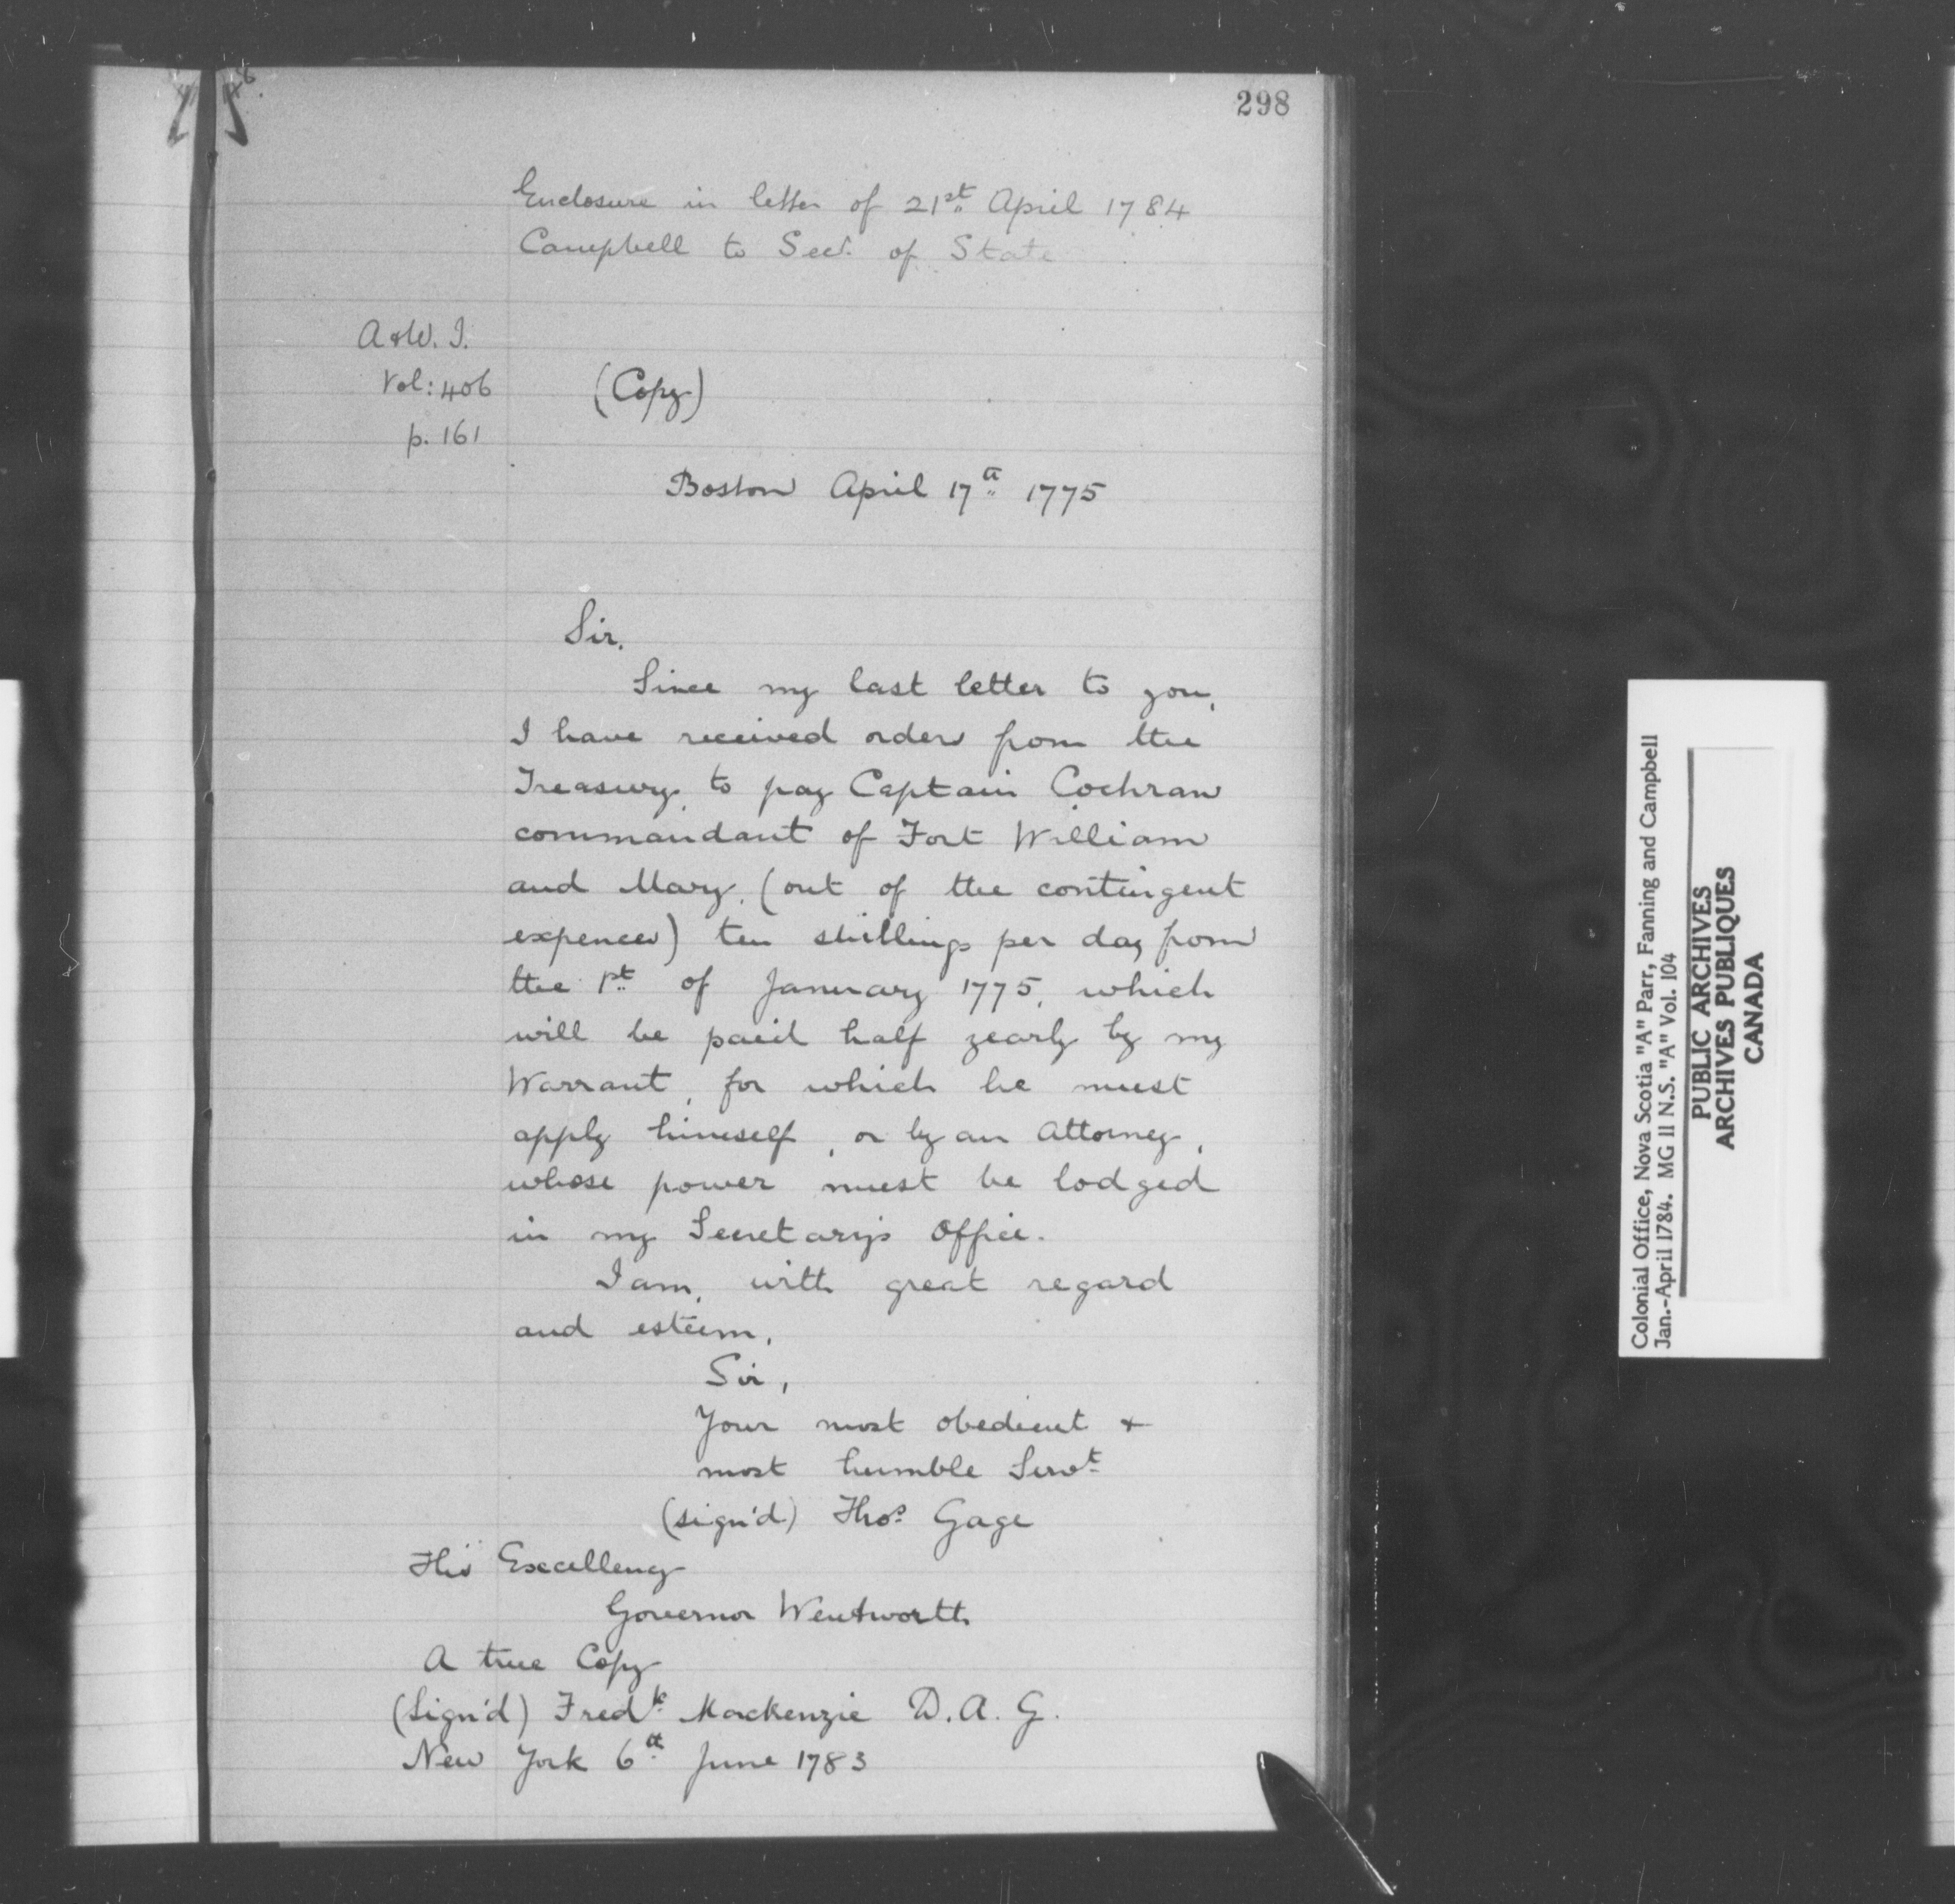 298
Enclosure in letter of 21st April 1784
Campbell to Secy. of State
A & W. I.
Vol: 406
p. 161
(Copy)
Boston April 17th 1775
Sir.
Since my last letter to you,
I have received orders from the
Treasury, to pay Captain Cochran
commandant of Fort William
and Mary, (out of the contingent
expences) ten shillings per day from
the 1st of January 1775, which
will be paid half yearly by my
Warrant, for which he must
apply himself, or by an Attorney,
whose power must be lodged
in my Secretary's Office.
I am, with great regard
and esteem,
Sir,
Your most obedient &
most humble Servt
(sign'd) Thos. Gage
His Excellency
Governor Wentworth
A true Copy
(Sign'd) Fredk Mackenzie D. A. G.
New York 6th June 1783
Colonial Office, Nova Scotia "A" Parr, Fanning and Campbell
Jan.-April 1784. MG 11 N.S. "A" Vol. 104
PUBLIC ARCHIVES
ARCHIVES PUBLIQUES
CANADA